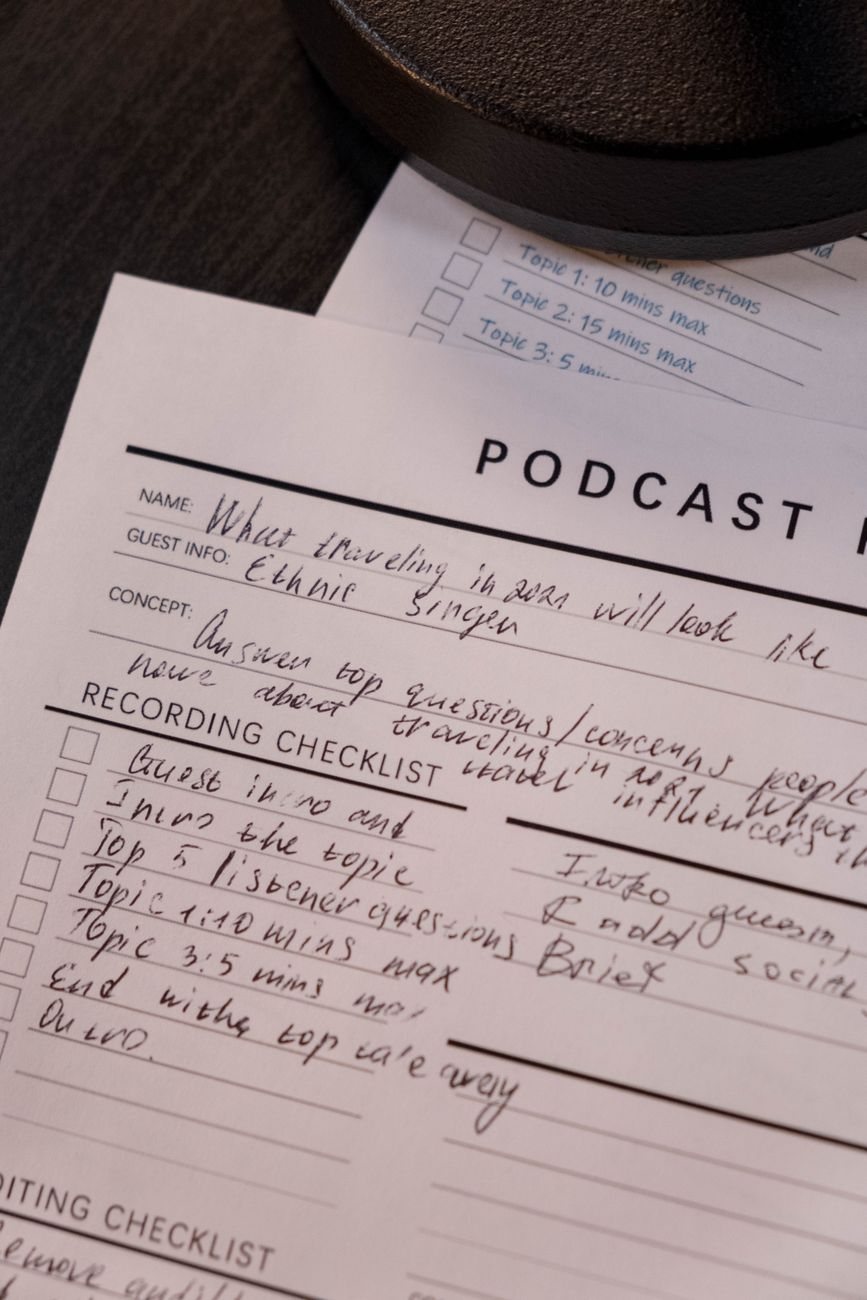 Topic 1: 10 mins max
Topic 2: 15 mins max
Topic 3: 5
questions
PODCAST
NAME: What traveling in 2021 will look like
GUEST INFO: Ethnic Singer
CONCEPT: Answer top questions/concerns people
have about traveling in 2021. What
travel influencers th
RECORDING CHECKLIST
Guest intro and
Intro the topic
Top 5 listener questions
Topic 1:10 mins max
Topic 3:5 mins
End with top
away
Outro.
Brief
social
CHECKLIST